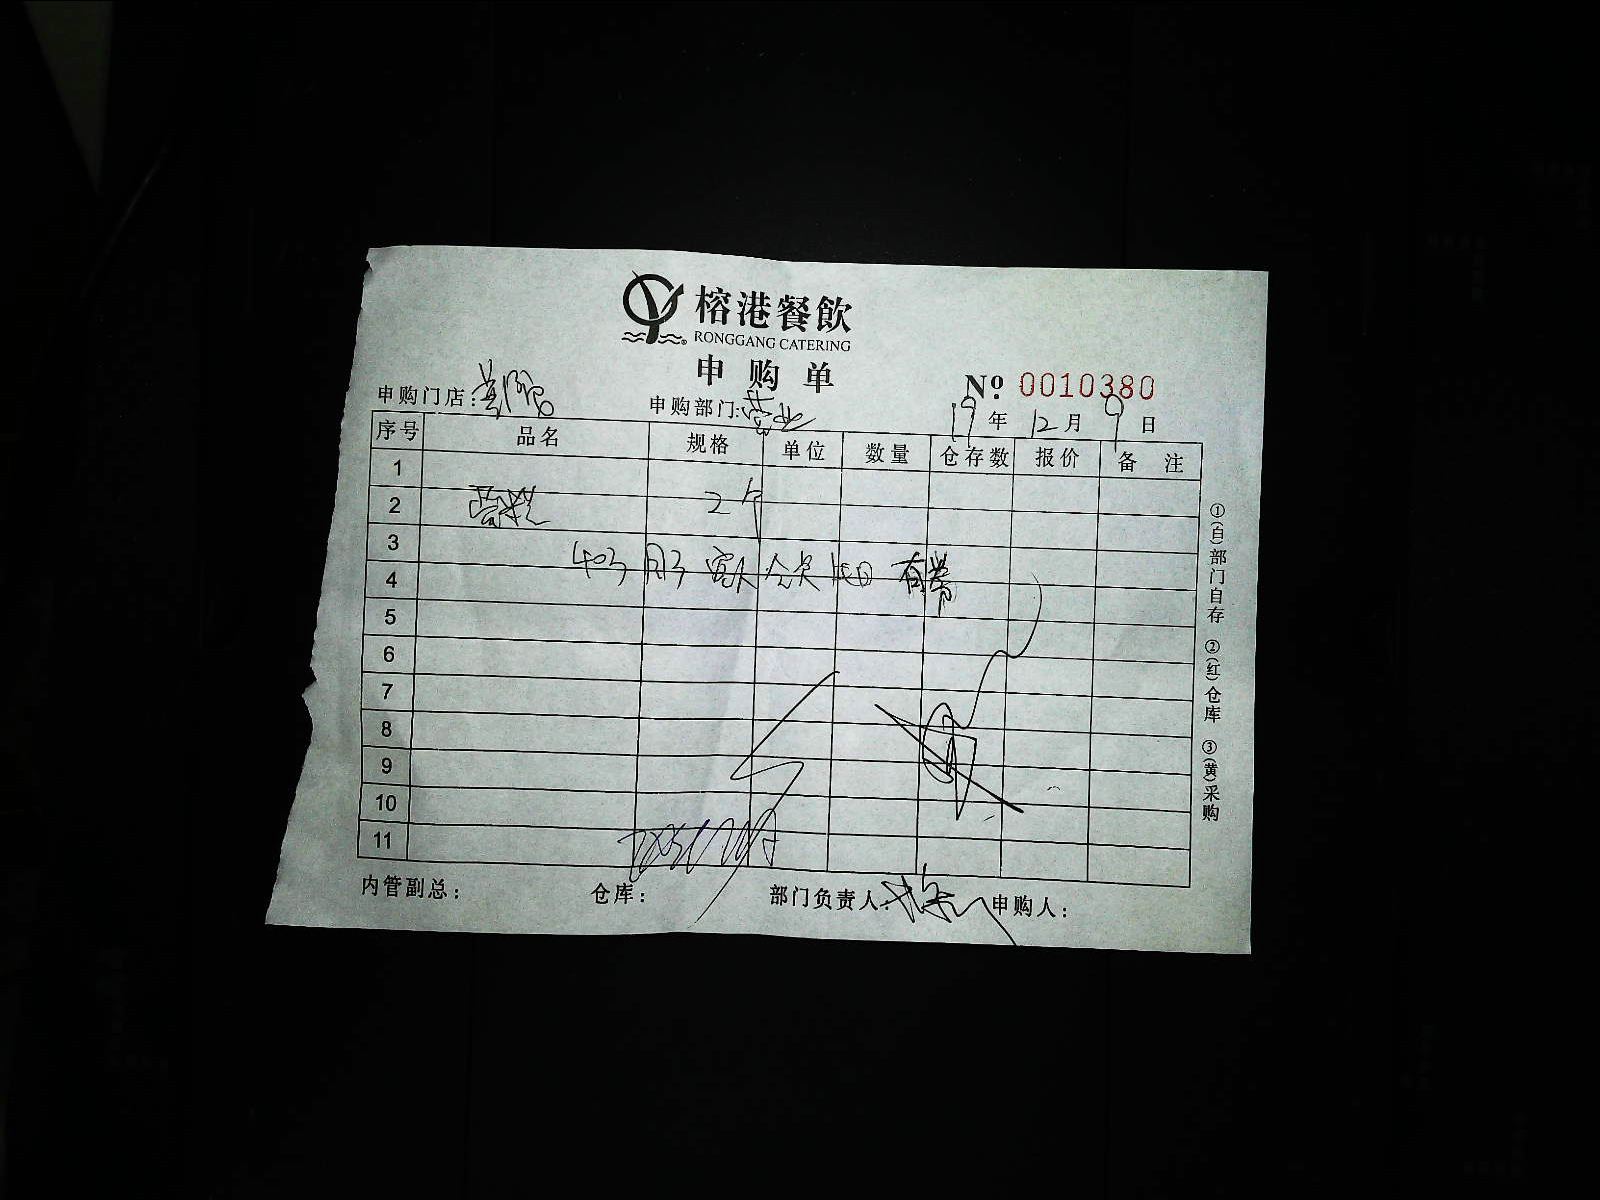 榕港餐飲
RONGGANG CATERING
申购单
№ 0010380
申购门店： 申购部门：营业 19年12月9日
序号 品名 规格 单位 数量 仓存数 报价 备注
1
2 2个
3
4 403 房 客人 生日 有券
5
6
7
8
9
10
11
内管副总： 仓库： 部门负责人： 申购人：
①(白)部门自存 ②(红)仓库 ③(黄)采购